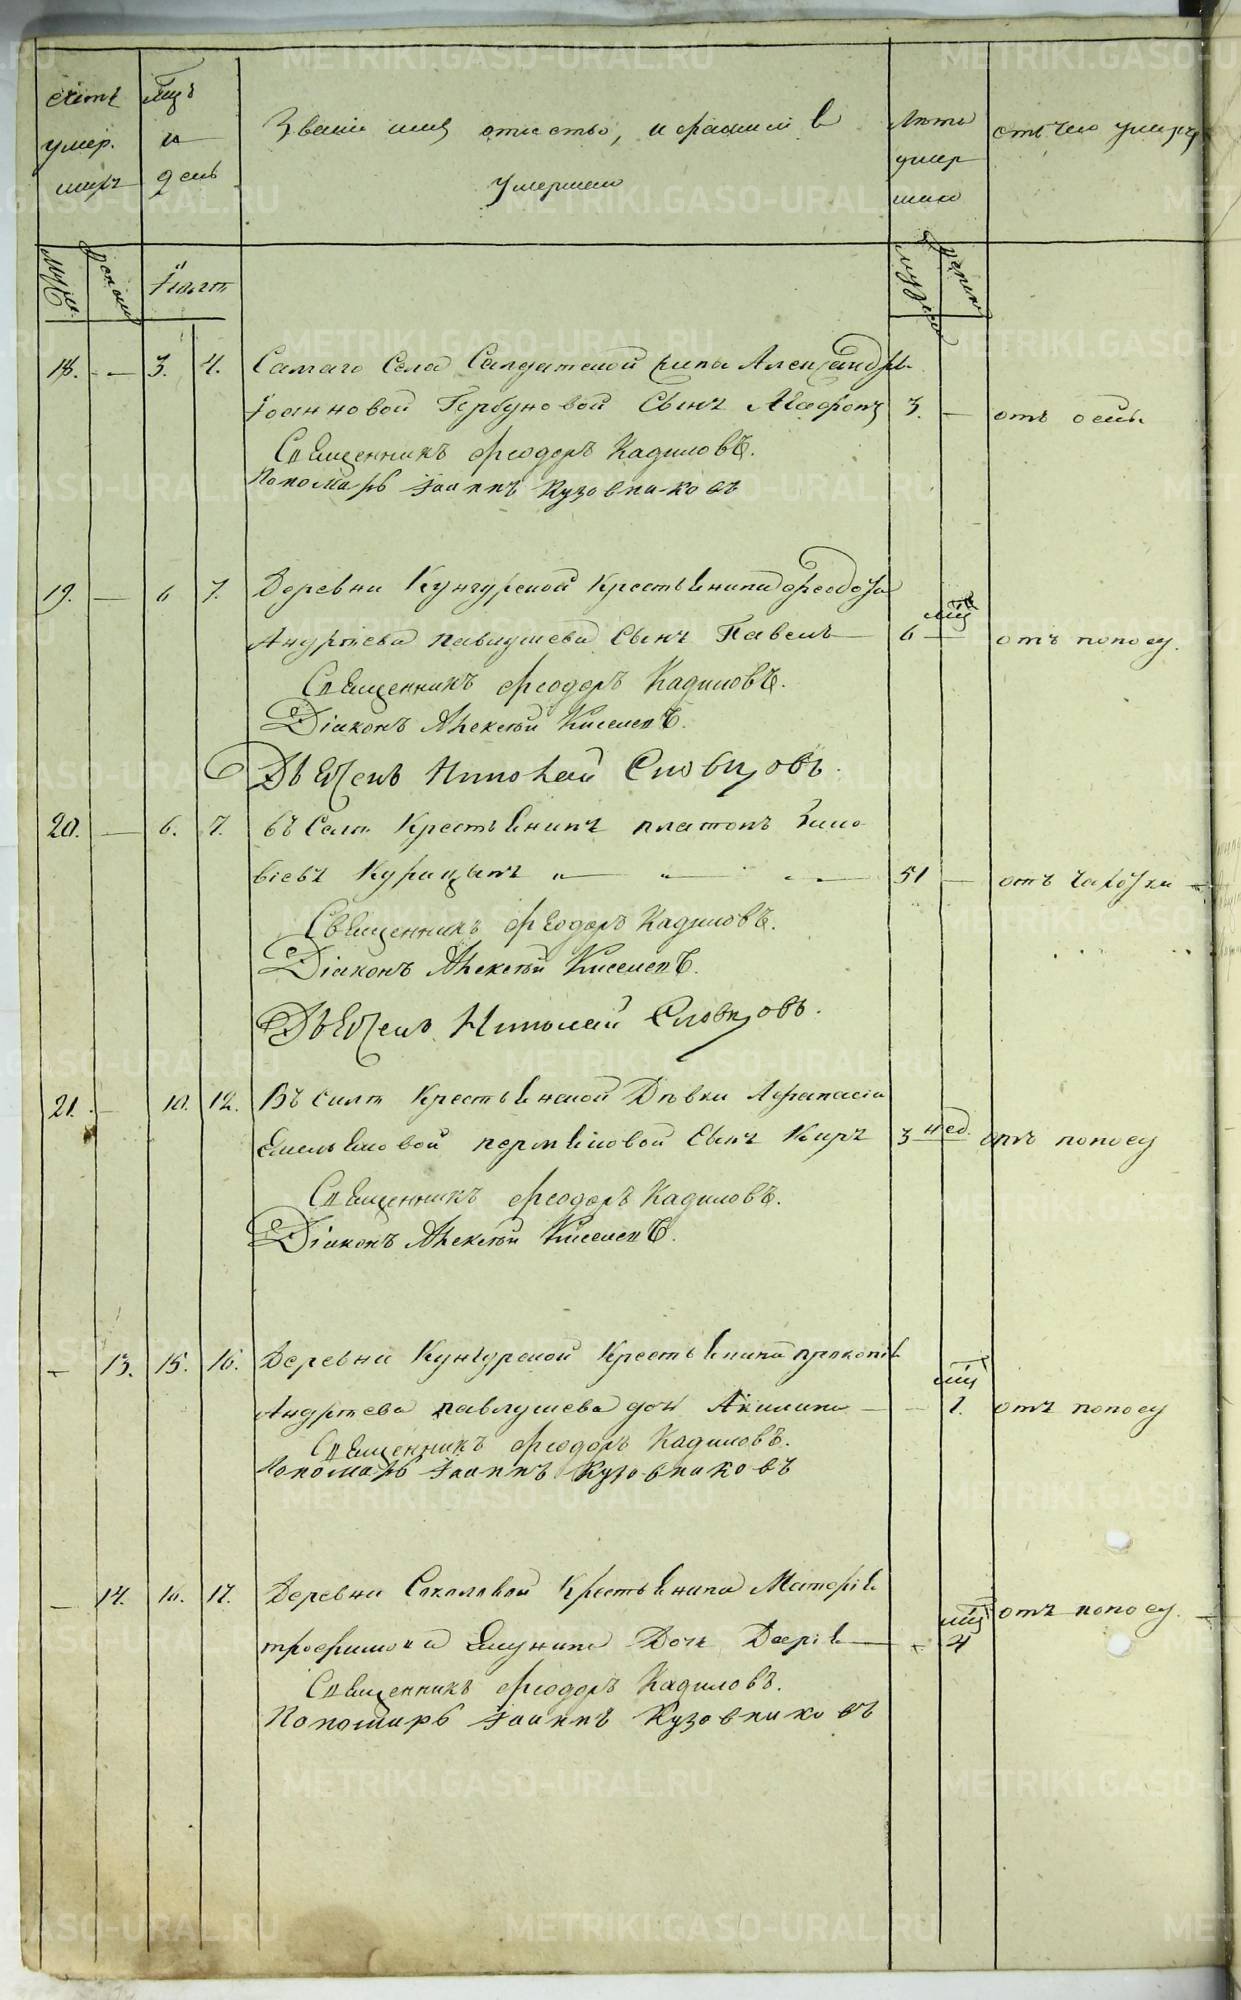 счетъ умер. шихъ
Мцъ и день
Званіе имя отчество, и фамилій
умершаго
Лѣта умер шаго
отъ чего умеръ
муж.
женск
Іюль
муж
женск
18. — 3. 4. Самаго Села Салдатской жены Александры
Іоанновой Горбуновой Сынъ Агафонъ 3. — отъ оспы.
Священникъ Феодоръ Кадиловъ.
Пономарь Іоаннъ Кузовниковъ
19. — 6 7. Деревни Кунгурской Крестьянина Феодора
Андрѣева Павлушева Сынъ Павелъ — 6 мц — отъ поносу.
Священникъ Феодоръ Кадиловъ.
Діаконъ Алексѣй Киселевъ.
Дьячекъ Николай Словцовъ.
20. — 6. 7. въ Селѣ Крестьянинъ Платонъ Зино
віевъ Курицынъ 51 — отъ чахотки
Священникъ Феодоръ Кадиловъ.
Діаконъ Алексѣй Киселевъ.
Дьячекъ Николай Словцовъ.
21. — 10. 12. Въ Селѣ Крестьянской Дѣвки Афанасіи
Емельяновой Пермяковой Сынъ Киръ 3 нед. отъ поносу
Священникъ Феодоръ Кадиловъ.
Діаконъ Алексѣй Киселевъ.
— 13. 15. 16. Деревни Кунгурской Крестьянина Прокопія
Андрѣева Павлушева дочь Акилина — — мц 1. отъ поносу
Священникъ Феодоръ Кадиловъ.
Пономарь Іоаннъ Кузовниковъ
— 14. 16. 17. Деревни Соколовой Крестьянина
Трофимова Дочь Дарія — мц 4 отъ поносу.
Священникъ Феодоръ Кадиловъ.
Пономарь Іоаннъ Кузовниковъ
METRIKI.GASO-URAL.RU